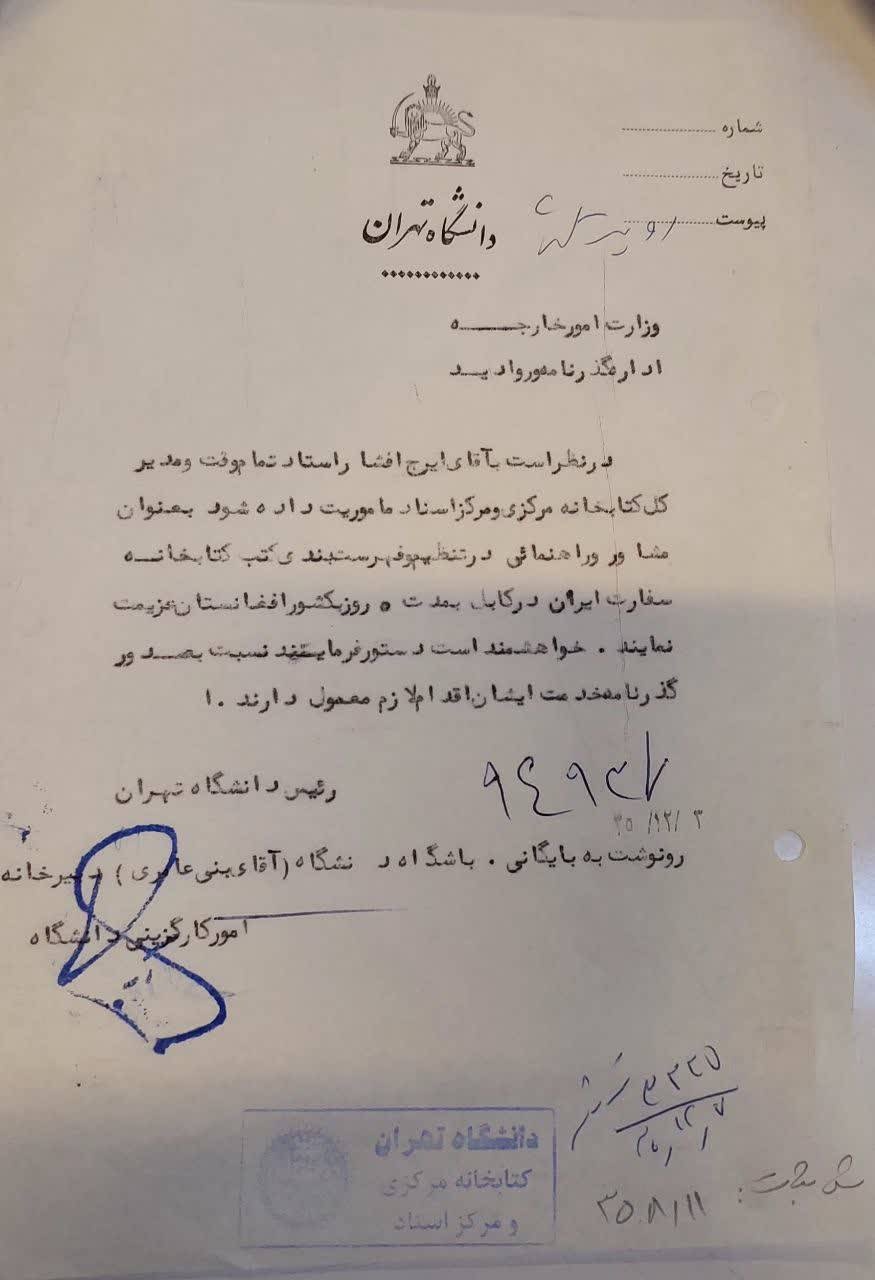 شماره
تاریخ
پیوست
دانشگاه تهران
وزارت امور خارجه
اداره گذرنامه و روادید
در نظر است بآقای ایرج افشار استاد تمام وقت و مدیر
کل کتابخانه مرکزی و مرکز اسناد ماموریت داده شود بعنوان
مشاور و راهنمائی در تنظیم و فهرست بندی کتب کتابخانه
سفارت ایران در کابل بمدت ۵ روز بکشور افغانستان عزیمت
نمایند . خواهشمند است دستور فرمایند نسبت بصدور
گذرنامه خدمت ایشان اقدام لازم معمول دارند . ا
رئیس دانشگاه تهران
۹۴۹۳۷
۳۵/۱۲/۳
رونوشت به بایگانی . باشگاه دانشگاه (آقای بنی عامری) دبیرخانه
امور کارگزینی دانشگاه
دانشگاه تهران
کتابخانه مرکزی
و مرکز اسناد
۳۵/۸/۱۱